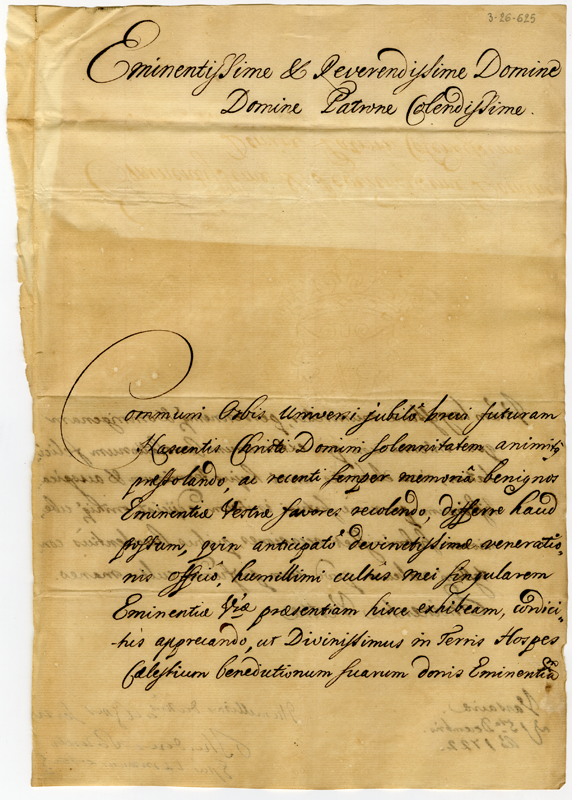 3-26-625
Eminentissime & Reverendissime Domine
Domine Patrone Colendissime.
Communi Orbis Universi jubilo brevi futuram
Nascentis Christi Domini solennitatem animitus
præstolando, ac recenti semper memoriâ benignos
Eminentiæ Vestræ favores recolendo, differre haud
possum, quin anticipato devinctissimæ veneratio-
nis officio, humillimi cultûs mei singularem
Eminentiæ Vræ præsentiam hisce exhibeam, cordici-
tus apprecando, ut Divinissimus in Terris Hospes
Cælestium benedictionum suarum donis Eminentia